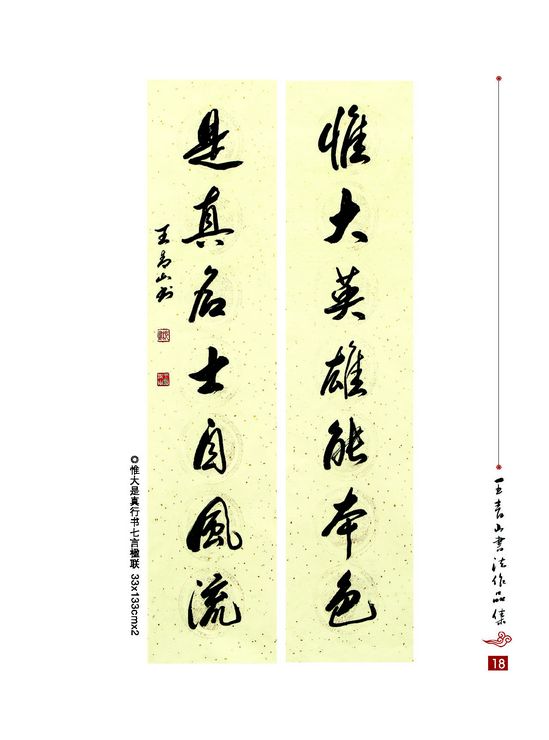 惟大英雄能本色
是真名士自風流
王青山书
◎惟大是真行书七言楹联 33x133cmx2
王青山書法作品集
18